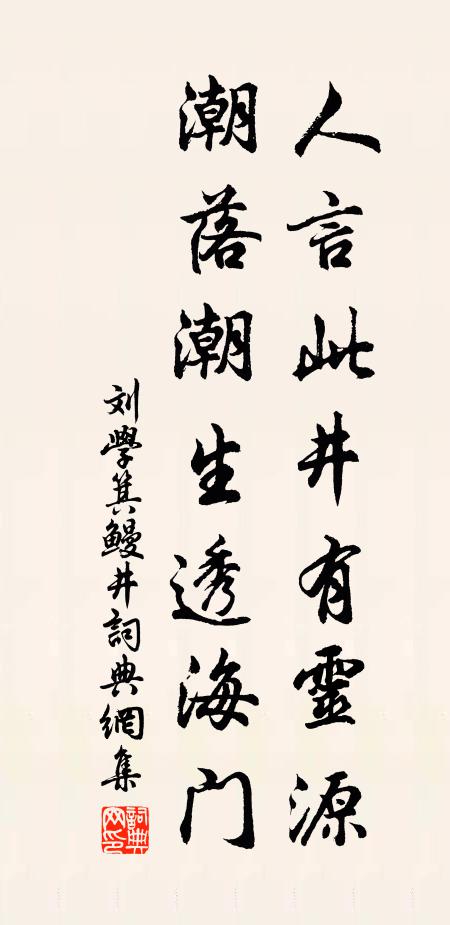 人言此井有靈源
潮落潮生透海門
刘學箕鰻井詞典網集
詞典网印